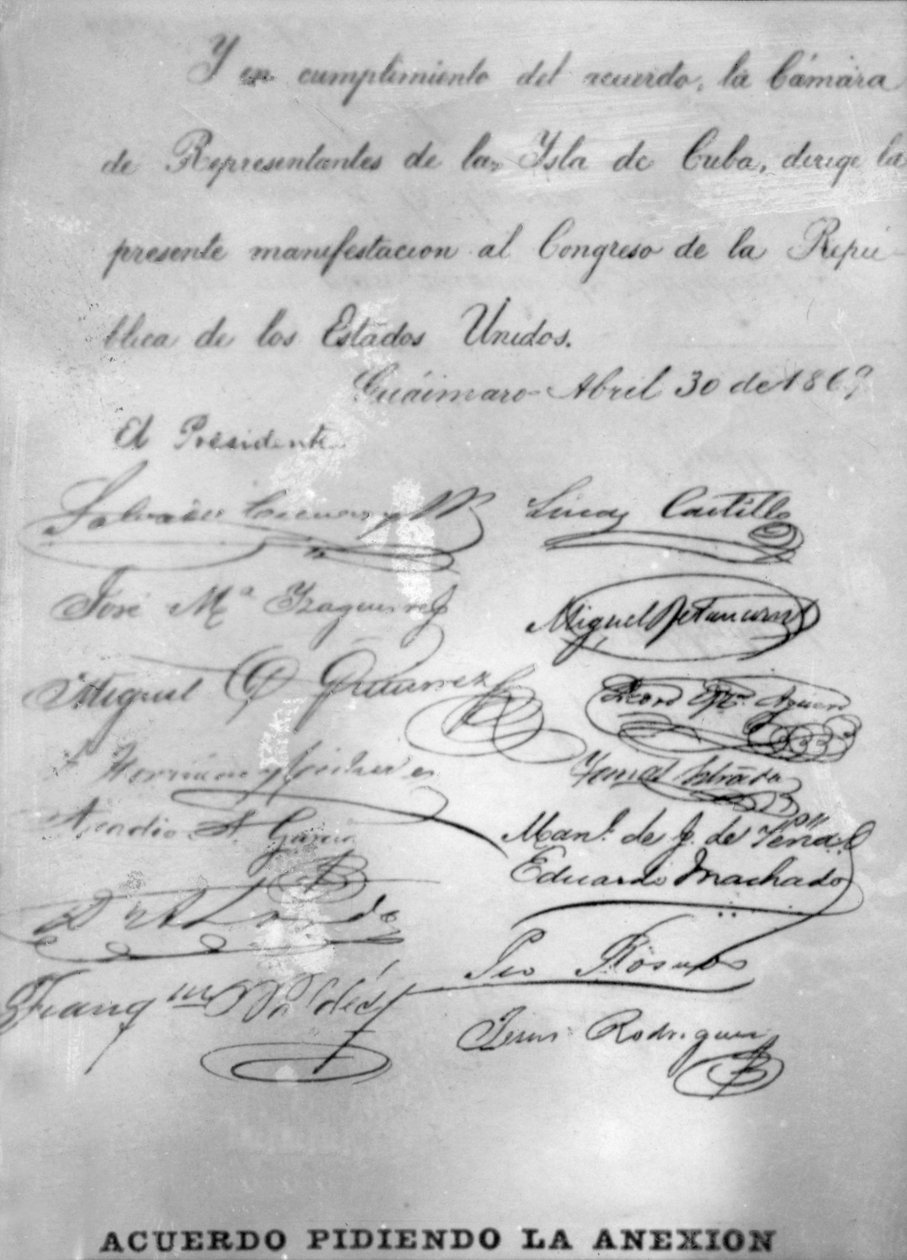 Y en cumplimiento del acuerdo, la Cámara
de Representantes de la Isla de Cuba, dirige la
presente manifestacion al Congreso de la Repú-
blica de los Estados Unidos.
Guáimaro Abril 30 de 1869
El Presidente
Salvador Cisneros y B
Lucas Castillo
José Mª Izaguirre
Miguel Betancourt
Miguel G Gutierrez
Tomas Estrada
Arcadio S. Garcia
Manl. de J. de Peña
Eduardo Machado
Pio Rosado
Valdés
Jesus Rodriguez
ACUERDO PIDIENDO LA ANEXION